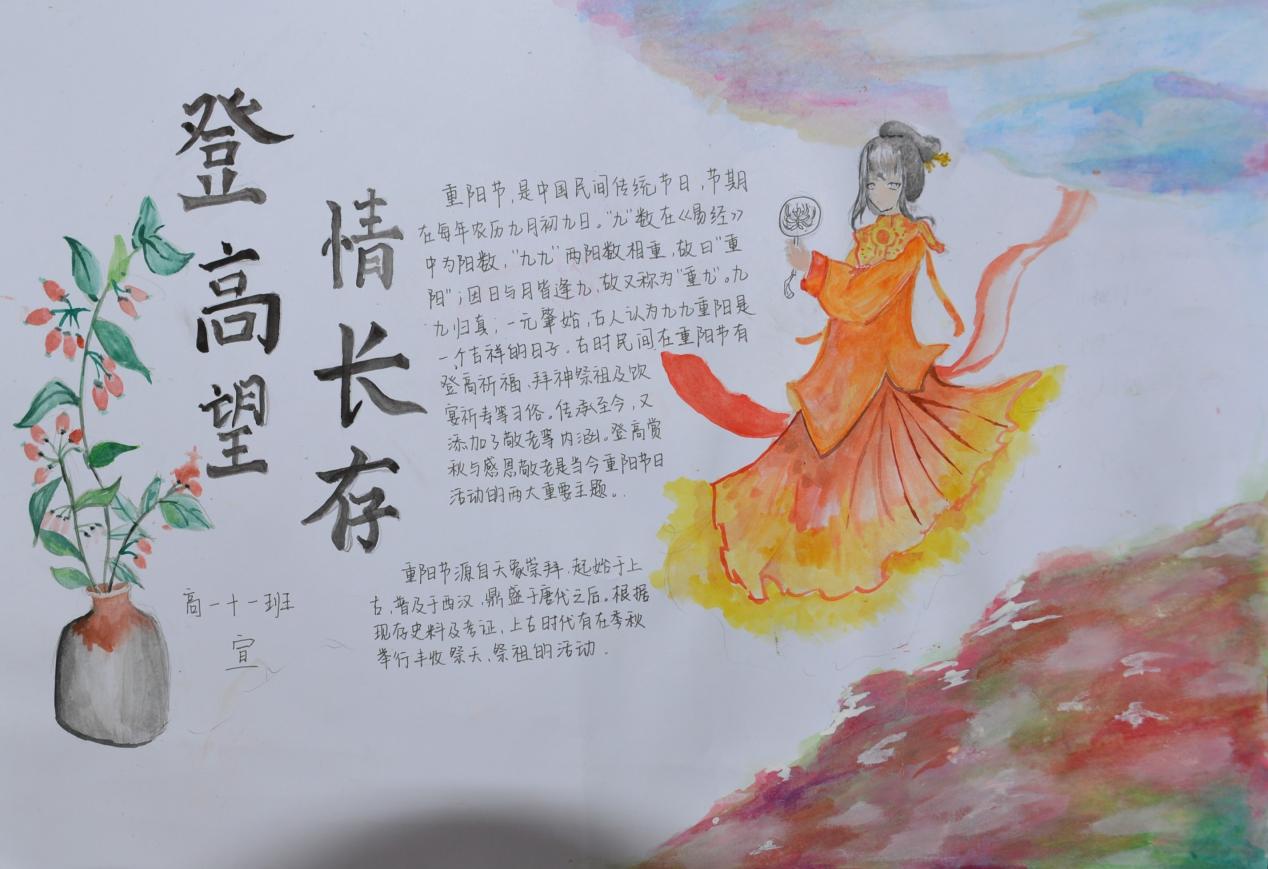 登高望
情长存
重阳节,是中国民间传统节日,节期
在每年农历九月初九日。“九”数在《易经》
中为阳数,“九九”两阳数相重,故曰“重
阳”;因日与月皆逢九,故又称为“重九”。九
九归真,一元肇始,古人认为九九重阳是
一个吉祥的日子。古时民间在重阳节有
登高祈福、拜神祭祖及饮
宴祈寿等习俗。传承至今,又
添加了敬老等内涵。登高赏
秋与感恩敬老是当今重阳节日
活动的两大重要主题。
重阳节源自天象崇拜,起始于上
古,普及于西汉,鼎盛于唐代之后。根据
现存史料及考证,上古时代有在季秋
举行丰收祭天、祭祖的活动.
高一十一班
宣